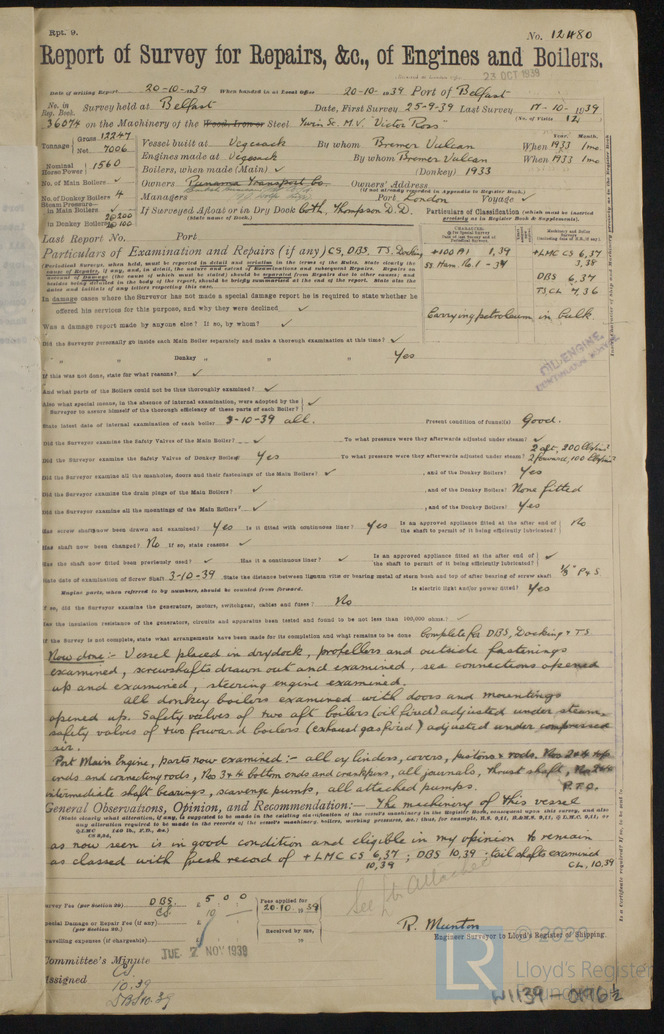 Rpt. 9.
No. 12480
Report of Survey for Repairs, &c., of Engines and Boilers.
23 OCT 1939
Date of writing Report 20-10-1939 When handed in at Local Office 20-10-1939 Port of Belfast
No. in Reg. Book. Survey held at Belfast Date, First Survey 25-9-39 Last Survey 17-10-1939
(No. of Visits 12)
36074 on the Machinery of the Wood, Iron or Steel Twin Sc. M.V. "Victor Ross"
Tonnage Gross 12247 Net 7006 Vessel built at Vegesack By whom Bremer Vulcan When Year. 1933 Month. 1mo
Nominal Horse Power 1560 Engines made at Vegesack By whom Bremer Vulcan When 1933 1mo
No. of Main Boilers ✓ Boilers, when made (Main) ✓ (Donkey) 1933
No. of Donkey Boilers 4 Owners Panama Transport Co. Owners' Address
(if not already recorded in Appendix to Register Book.)
Steam Pressure— in Main Boilers ✓ Managers Port London Voyage ✓
in Donkey Boilers 2@200 2@100 If Surveyed Afloat or in Dry Dock both, Thompson D.D.
(State name of Dock.)
Particulars of Classification (which must be inserted precisely as in Register Book & Supplements).
Last Report No. Port
Particulars of Examination and Repairs (if any) CS, DBS, TS, Docking
+100A1 1,39
SS Ham. No.1 - 34
+LMC CS 6,37
3,38
DBS 6,37
TS CL 7,36
Carrying petroleum in bulk
In damage cases where the Surveyor has not made a special damage report he is required to state whether he
offered his services for this purpose, and why they were declined ✓
Was a damage report made by anyone else? If so, by whom? ✓
OIL ENGINE.
Did the Surveyor personally go inside each Main Boiler separately and make a thorough examination at this time? ✓
" " Donkey " " " Yes
If this was not done, state for what reasons? ✓
And what parts of the Boilers could not be thus thoroughly examined? ✓
Also what special means, in the absence of internal examination, were adopted by the
Surveyor to assure himself of the thorough efficiency of these parts of each Boiler? ✓
State latest date of internal examination of each boiler 3-10-39 all. Present condition of funnel(s) Good.
Did the Surveyor examine the Safety Valves of the Main Boiler? ✓ To what pressure were they afterwards adjusted under steam? ✓
Did the Surveyor examine the Safety Valves of Donkey Boiler? Yes To what pressure were they afterwards adjusted under steam? 2 aft, 200 lbs/sq.in. 2 forward, 100 lbs/sq.in.
Did the Surveyor examine all the manholes, doors and their fastenings of the Main Boilers? ✓, and of the Donkey Boilers? Yes
Did the Surveyor examine the drain plugs of the Main Boilers? ✓, and of the Donkey Boilers? None fitted
Did the Surveyor examine all the mountings of the Main Boilers? ✓, and of the Donkey Boilers? Yes
Has screw shaft now been drawn and examined? Yes Is it fitted with continuous liner? Yes Is an approved appliance fitted at the after end of
the shaft to permit of it being efficiently lubricated? No
Has shaft now been changed? No If so, state reasons ✓
Has the shaft now fitted been previously used? ✓ Has it a continuous liner? ✓ Is an approved appliance fitted at the after end of
the shaft to permit of it being efficiently lubricated? ✓
State date of examination of Screw Shaft 3-10-39 State the distance between lignum vitæ or bearing metal of stern bush and top of after bearing of screw shaft 1/8" P & S
Engine parts, when referred to by numbers, should be counted from forward. Is electric light and/or power fitted? Yes
If so, did the Surveyor examine the generators, motors, switchgear, cables and fuses? No
Has the insulation resistance of the generators, circuits and apparatus been tested and found to be not less than 100,000 ohms? ✓
If the Survey is not complete, state what arrangements have been made for its completion and what remains to be done Complete for DBS, Docking & TS
Now done:- Vessel placed in drydock, propellers and outside fastenings
examined, screwshafts drawn out and examined, sea connections opened
up and examined, steering engine examined.
All donkey boilers examined with doors and mountings
opened up. Safety valves of two aft boilers (oil fired) adjusted under steam,
safety valves of two forward boilers (exhaust gas fired) adjusted under compressed
air.
Port Main Engine, parts now examined:- all cylinders, covers, pistons & rods, Nos 2 & 4 top
ends and connecting rods, Nos 3 & 4 bottom ends and crankpins, all journals, thrust shaft,
intermediate shaft bearings, scavenge pumps, all attached pumps. P.T.O.
General Observations, Opinion, and Recommendation:— The machinery of this vessel
as now seen is in good condition and eligible in my opinion to remain
as classed with fresh record of +LMC CS 6,37; DBS 10,39; tail shafts examined
10,39 CL, 10,39
See attached
Survey Fee (per Section 29) DBS. £ 5 0 0
CS. 10
Fees applied for 20.10.1939
Special Damage or Repair Fee (if any) £
(per Section 29.)
Received by me,
Travelling expenses (if chargeable) £
R. Munton
Engineer Surveyor to Lloyd's Register of Shipping.
TUE 2 NOV 1939
Committee's Minute
Assigned CS.
10.39
DBS 10.39
© 2020
LR
Lloyd's Register
Foundation
W1139-0196½